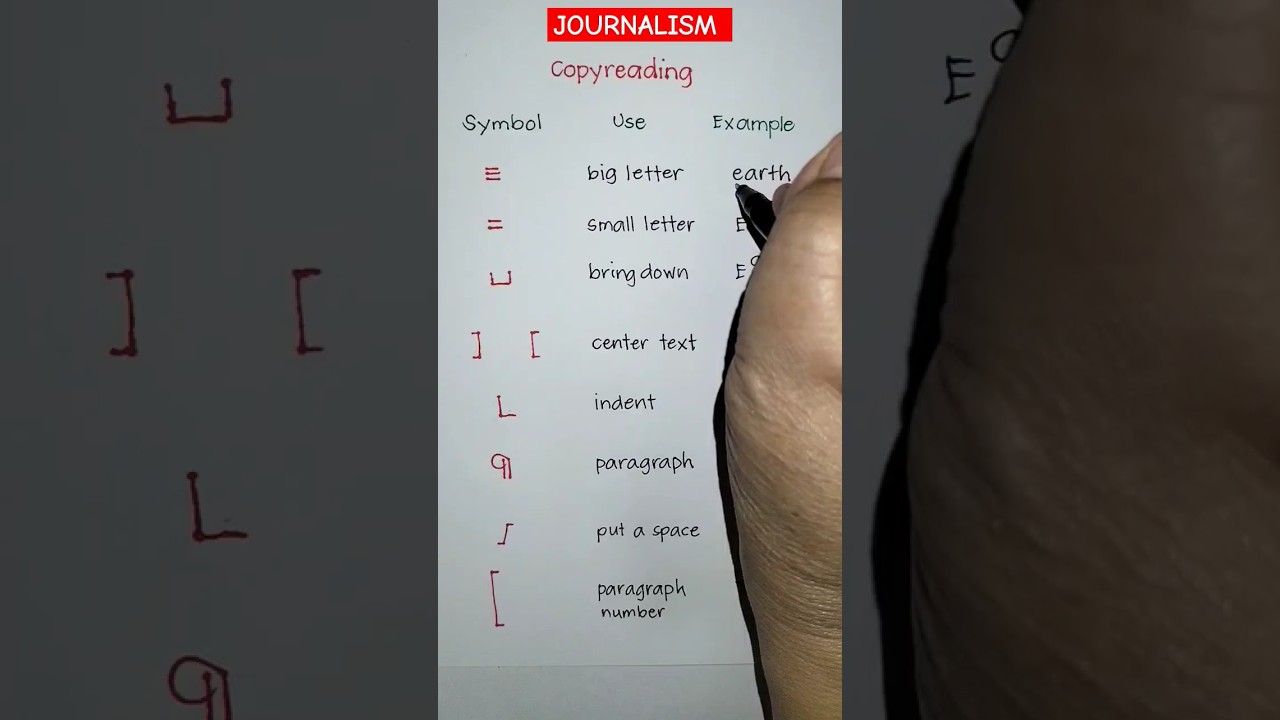 JOURNALISM
Copyreading
Symbol Use Example
≡ big letter earth
= small letter E
⊔ bring down E
] [ center text
L indent
¶ paragraph
put a space
[ paragraph
number